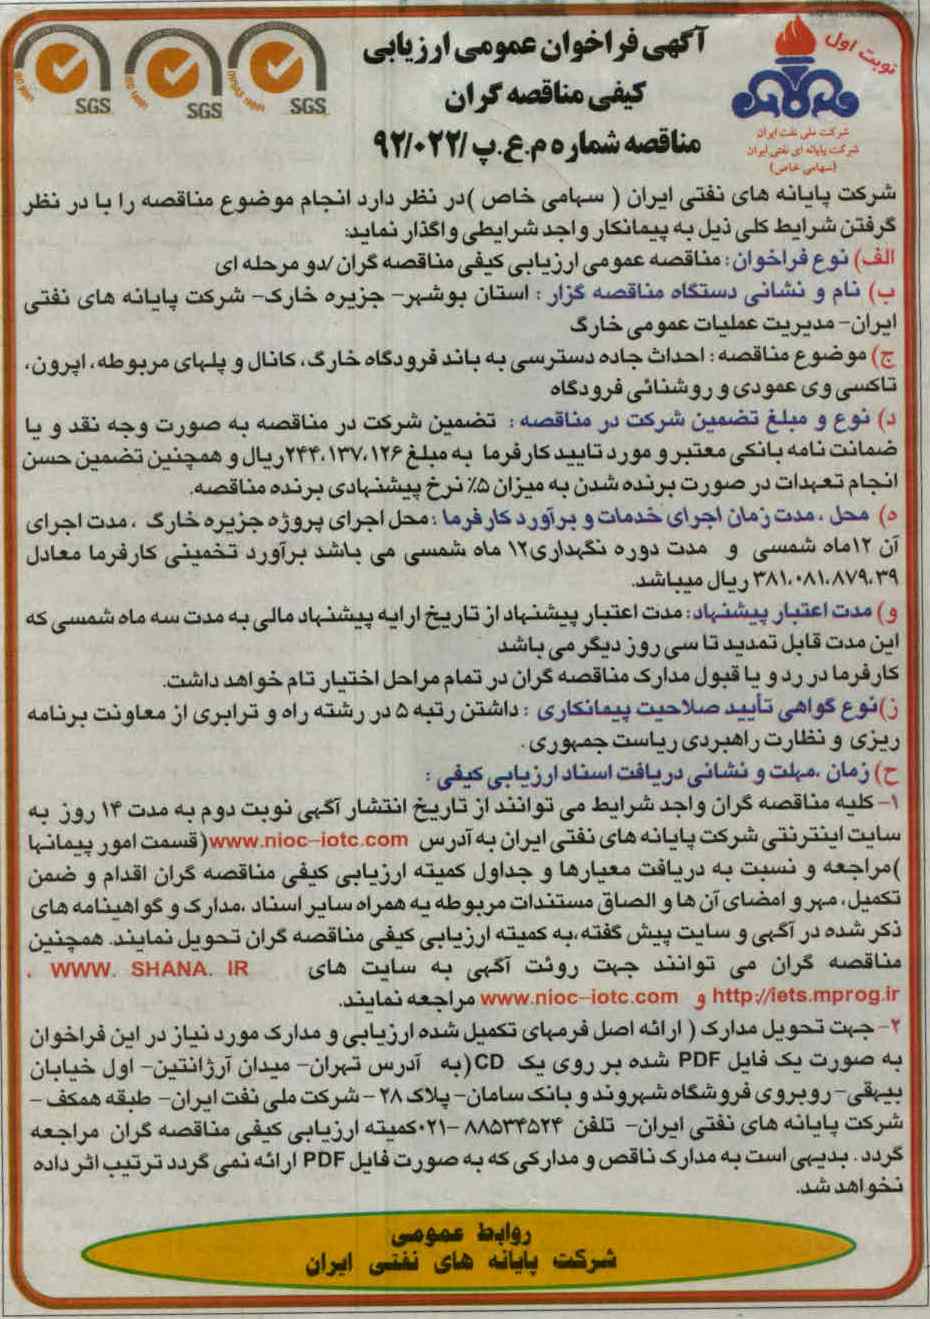 نوبت اول
آگهی فراخوان عمومی ارزیابی
کیفی مناقصه گران
مناقصه شماره م.ع.پ /۹۲/۰۲۲
شرکت ملی نفت ایران
شرکت پایانه ای نفتی ایران
(سهامی خاص)
SGS
SGS
SGS
شرکت پایانه های نفتی ایران ( سهامی خاص )در نظر دارد انجام موضوع مناقصه را با در نظر
گرفتن شرایط کلی ذیل به پیمانکار واجد شرایطی واگذار نماید:
الف) نوع فراخوان: مناقصه عمومی ارزیابی کیفی مناقصه گران /دو مرحله ای
ب) نام و نشانی دستگاه مناقصه گزار : استان بوشهر- جزیره خارک- شرکت پایانه های نفتی
ایران- مدیریت عملیات عمومی خارگ
ج) موضوع مناقصه: احداث جاده دسترسی به باند فرودگاه خارگ، کانال و پلهای مربوطه، اپرون،
تاکسی وی عمودی و روشنائی فرودگاه
د) نوع و مبلغ تضمین شرکت در مناقصه : تضمین شرکت در مناقصه به صورت وجه نقد و یا
ضمانت نامه بانکی معتبر و مورد تایید کارفرما به مبلغ ۲۴۴،۱۳۷،۱۲۶ریال و همچنین تضمین حسن
انجام تعهدات در صورت برنده شدن به میزان ۵٪ نرخ پیشنهادی برنده مناقصه.
ه) محل ،مدت زمان اجرای خدمات و برآورد کارفرما :محل اجرای پروژه جزیره خارگ ، مدت اجرای
آن ۱۲ماه شمسی و مدت دوره نگهداری۱۲ ماه شمسی می باشد برآورد تخمینی کارفرما معادل
۳۸۱،۰۸۱،۸۷۹،۳۹ ریال میباشد.
و) مدت اعتبار پیشنهاد: مدت اعتبار پیشنهاد از تاریخ ارایه پیشنهاد مالی به مدت سه ماه شمسی که
این مدت قابل تمدید تا سی روز دیگر می باشد
کارفرما در رد و یا قبول مدارک مناقصه گران در تمام مراحل اختیار تام خواهد داشت.
ز)نوع گواهی تأیید صلاحیت پیمانکاری : داشتن رتبه ۵ در رشته راه و ترابری از معاونت برنامه
ریزی و نظارت راهبردی ریاست جمهوری .
ح) زمان ،مهلت و نشانی دریافت اسناد ارزیابی کیفی :
۱- کلیه مناقصه گران واجد شرایط می توانند از تاریخ انتشار آگهی نوبت دوم به مدت ۱۴ روز به
سایت اینترنتی شرکت پایانه های نفتی ایران به آدرس www.nioc-iotc.com(قسمت امور پیمانها
)مراجعه و نسبت به دریافت معیارها و جداول کمیته ارزیابی کیفی مناقصه گران اقدام و ضمن
تکمیل، مهر و امضای آن ها و الصاق مستندات مربوطه به همراه سایر اسناد ،مدارک و گواهینامه های
ذکر شده در آگهی و سایت پیش گفته،به کمیته ارزیابی کیفی مناقصه گران تحویل نمایند. همچنین
مناقصه گران می توانند جهت روئت آگهی به سایت های WWW. SHANA. IR ،
http://iets.mprog.ir و www.nioc-iotc.com مراجعه نمایند.
۲- جهت تحویل مدارک ( ارائه اصل فرمهای تکمیل شده ارزیابی و مدارک مورد نیاز در این فراخوان
به صورت یک فایل PDF شده بر روی یک CD)به آدرس تهران- میدان آرژانتین- اول خیابان
بیهقی- روبروی فروشگاه شهروند و بانک سامان- پلاک ۲۸ - شرکت ملی نفت ایران- طبقه همکف -
شرکت پایانه های نفتی ایران- تلفن ۸۸۵۳۴۵۲۴ -۰۲۱کمیته ارزیابی کیفی مناقصه گران مراجعه
گردد . بدیهی است به مدارک ناقص و مدارکی که به صورت فایل PDF ارائه نمی گردد ترتیب اثر داده
نخواهد شد.
روابط عمومی
شرکت پایانه های نفتی ایران